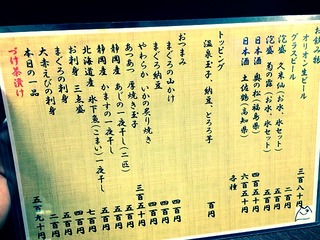 お飲み物
オリオン生ビール 三百八十円
グラスビール
泡盛 久米仙(お水、氷セット) 二百円
泡盛 菊の露(お水、氷セット) 五百円
日本酒 奥の松(福島県) 五百円
日本酒 土佐鶴(高知県) 六百五十円
各種
トッピング
温泉玉子、納豆、とろろ芋 百円
おつまみ
まぐろの山かけ 四百円
まぐろ納豆 四百円
やわらかいかの炙り焼き 四百円
あつあつ 厚焼き玉子 三百五十円
静岡産 あじの一夜干し(二匹)
静岡産 かますの一夜干し
北海道産 氷下魚(こまい)一夜干し
お刺身 三点盛
まぐろの刺身
大赤えびの刺身
本日の一品
づけ茶漬け 五百九十円